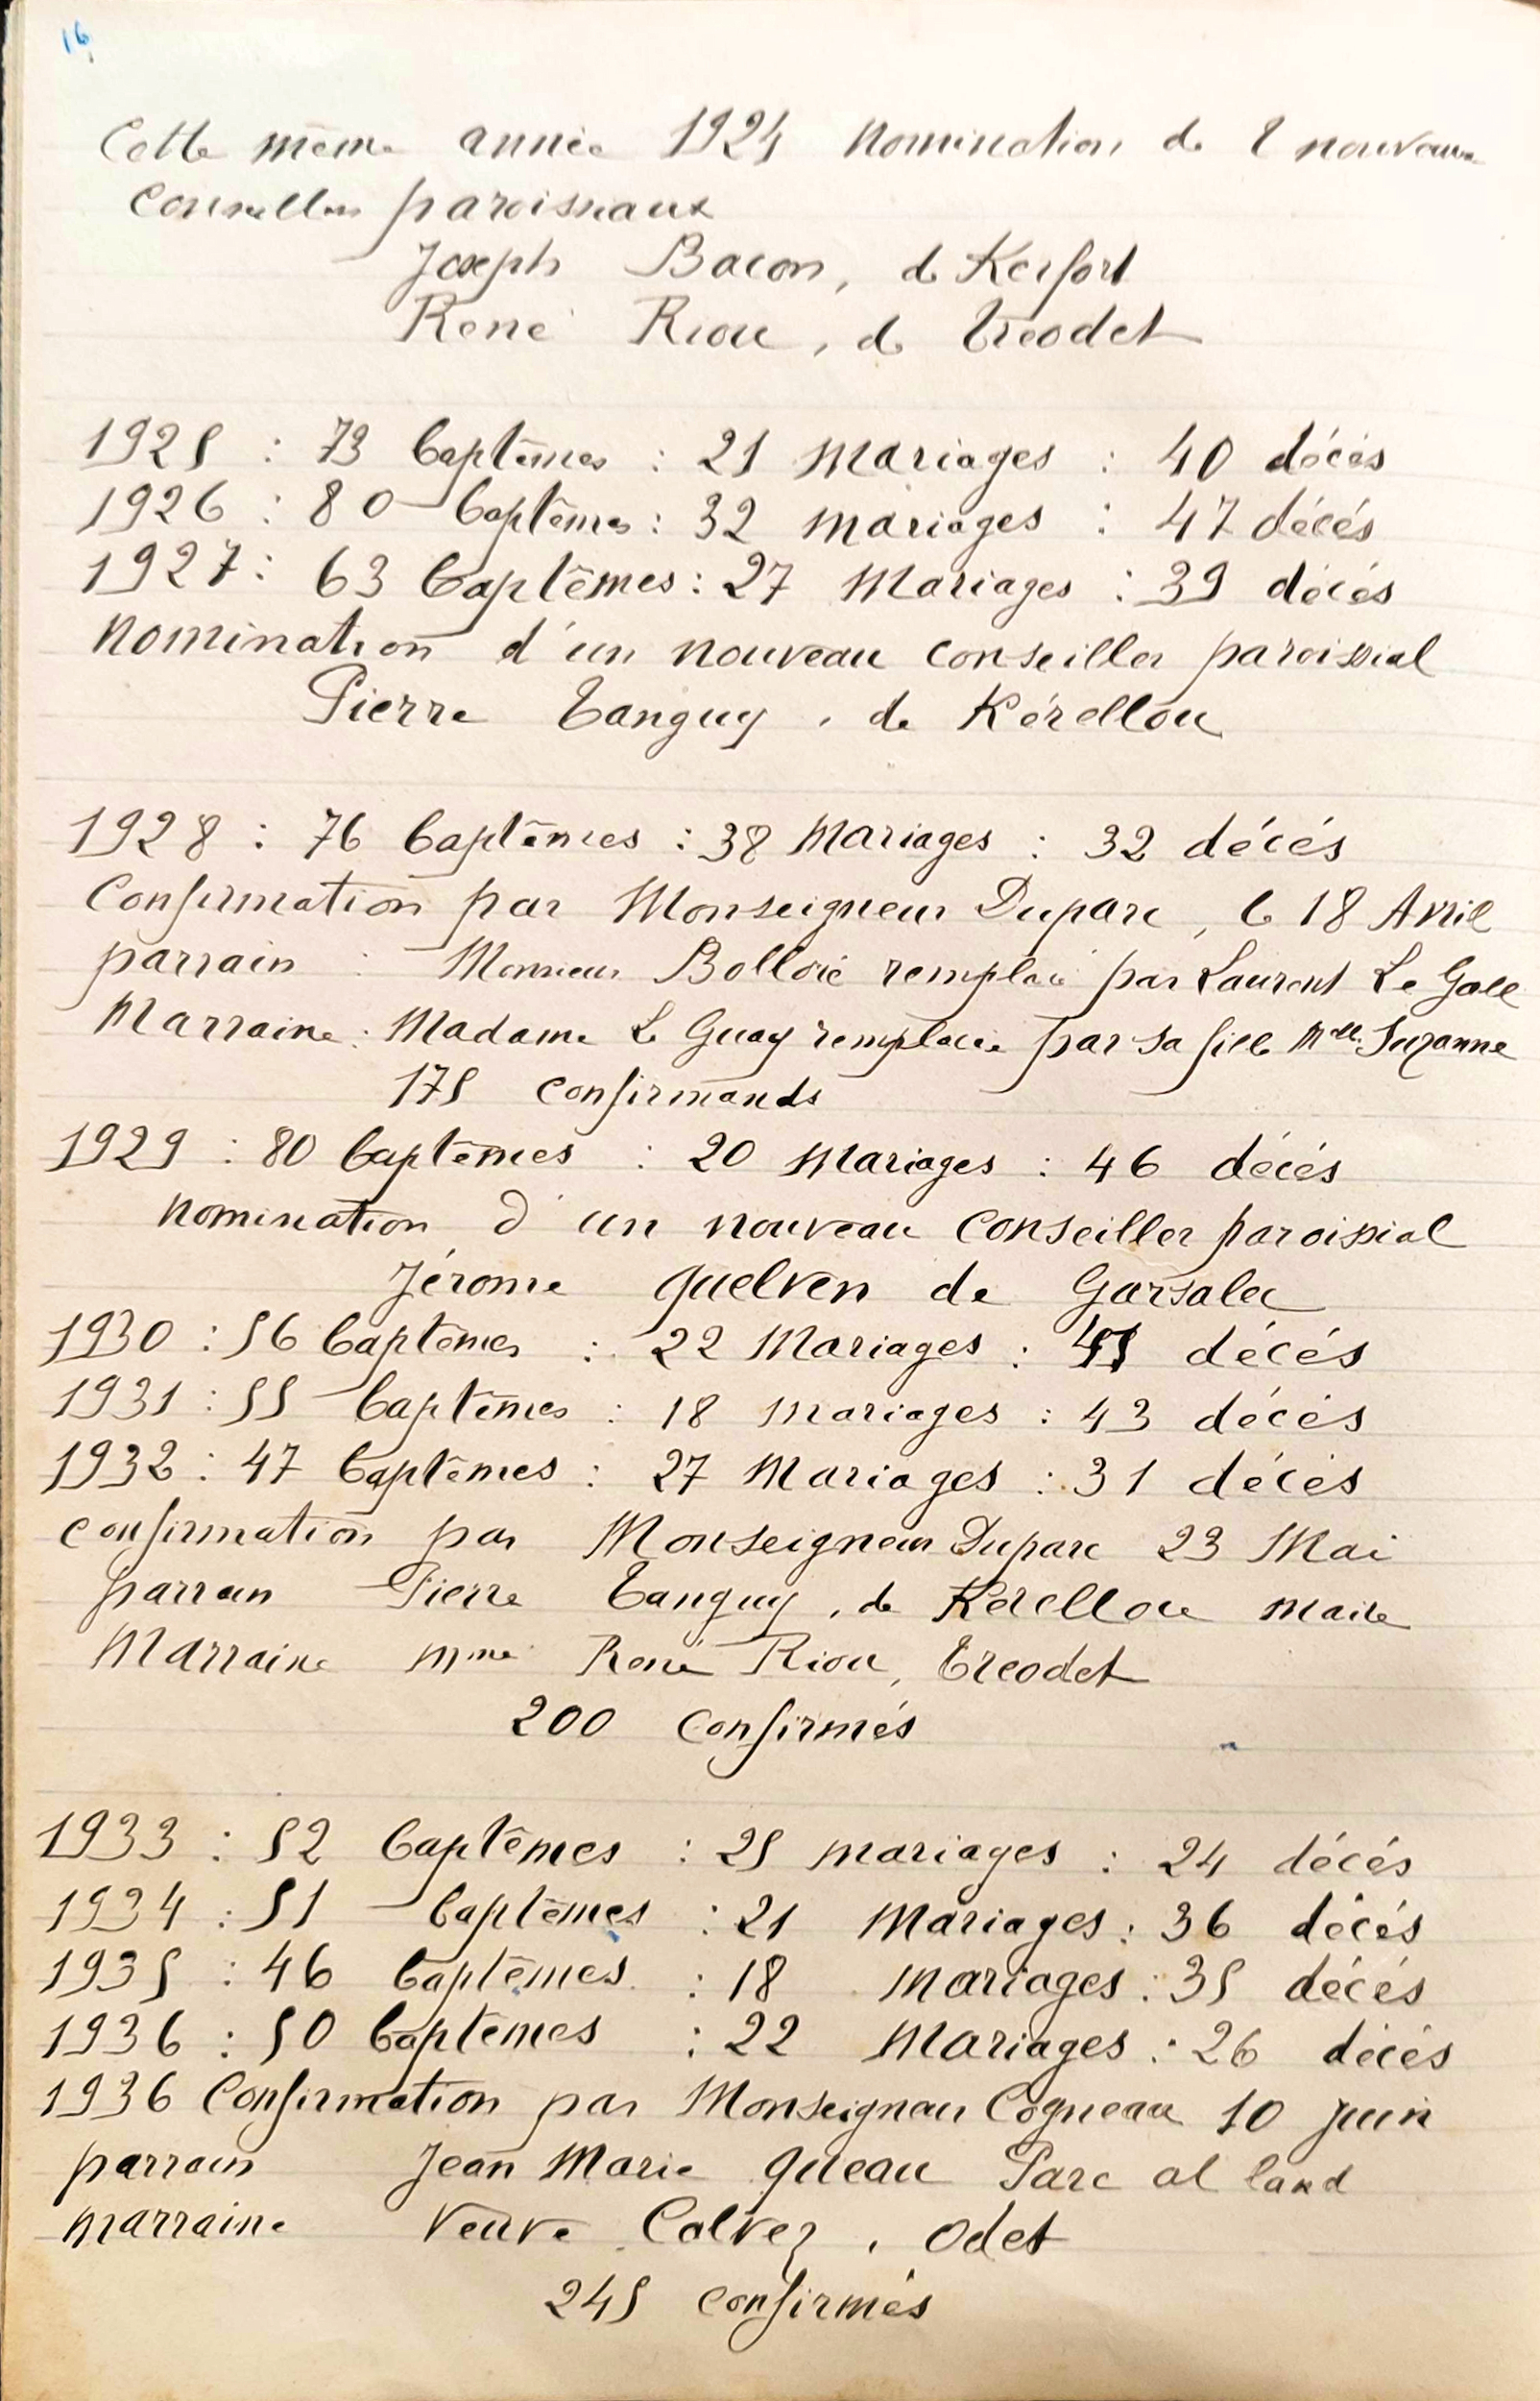 16
Cette même année 1924 nomination de 2 nouveaux
conseillers paroissiaux
Joseph Bacon, de Kerfort
René Riou, de Tréodet
1925 : 73 baptêmes : 21 mariages : 40 décés
1926 : 80 baptêmes : 32 mariages : 47 décés
1927 : 63 baptêmes : 27 mariages : 39 décés
Nomination d'un nouveau conseiller paroissial
Pierre Tanguy, de Kérellou
1928 : 76 baptêmes : 38 mariages : 32 décés
Confirmation par Monseigneur Duparc, le 18 Avril
parrain : Monsieur Bolloré remplacé par Laurent Le Gall
Marraine : Madame Le Guay remplacée par sa fille Mlle Suzanne
175 confirmands
1929 : 80 baptêmes : 20 mariages : 46 décés
nomination d'un nouveau conseiller paroissial
Jérome Quelven de Garsalec
1930 : 56 baptêmes : 22 Mariages : décés
1931 : 55 baptêmes : 18 mariages : 43 décés
1932 : 47 baptêmes : 27 Mariages : 31 décés
confirmation par Monseigneur Duparc 23 Mai
parrain Pierre Tanguy, de Kerellou maire
Marraine Mme René Riou, Treodet
200 confirmés
1933 : 52 baptêmes : 25 mariages : 24 décés
1934 : 51 baptêmes : 21 Mariages : 36 décés
1935 : 46 baptêmes : 18 Mariages : 35 décés
1936 : 50 baptêmes : 22 Mariages : 26 décés
1936 Confirmation par Monseigneur Cogneau 10 juin
parrain Jean Marie Quéau Parc al land
marraine Veuve Calvez, Odet
245 confirmés